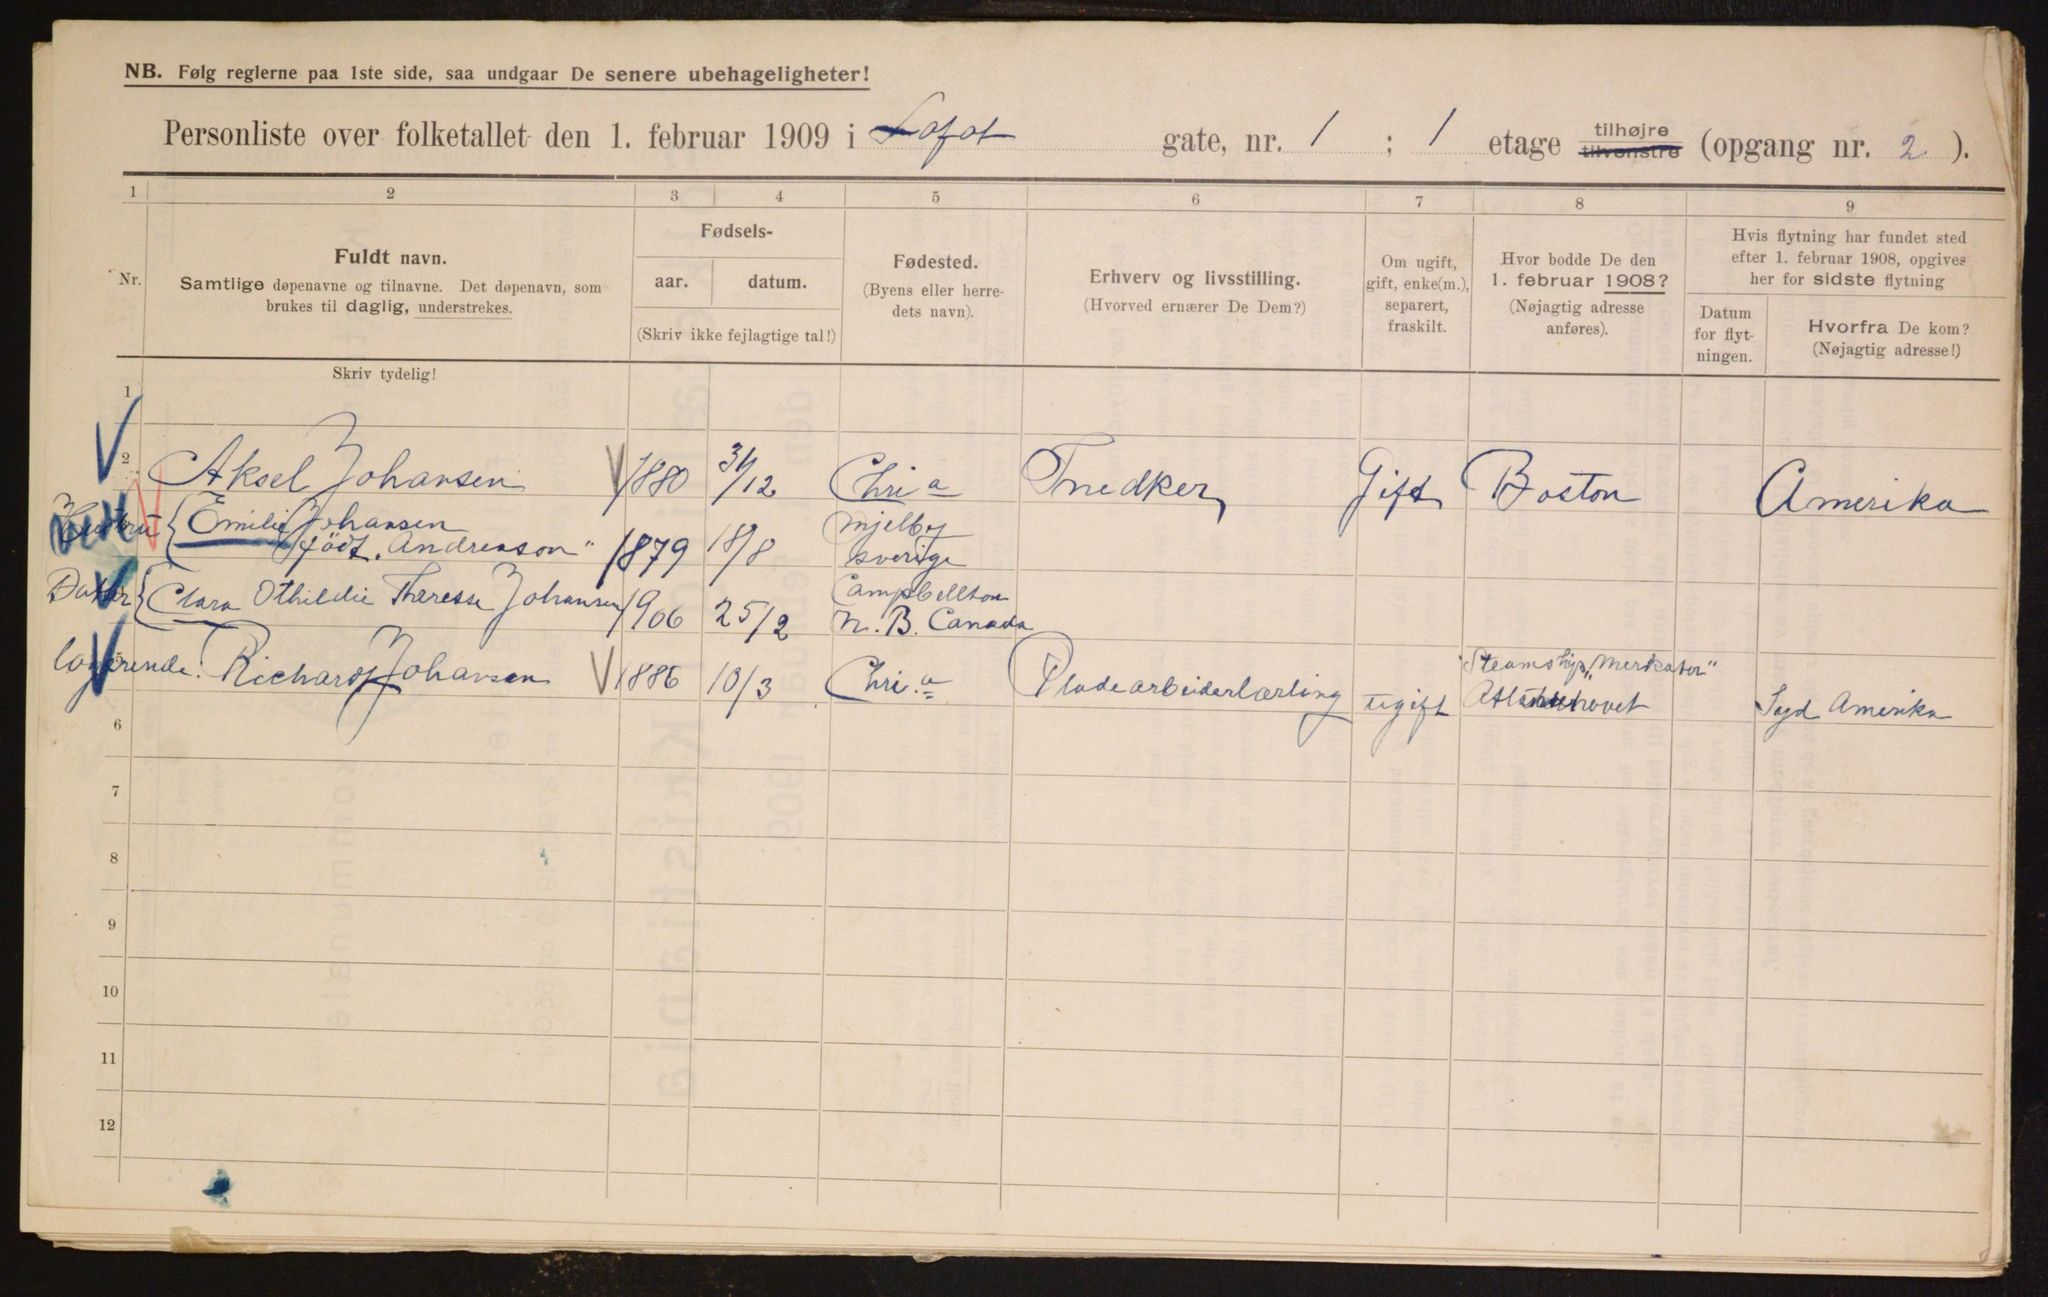 NB. Følg reglerne paa 1ste side, saa undgaar De senere ubehageligheter!
Personliste over folketallet den 1. februar 1909 i Lofot gate, nr. 1 ; 1 etage tilhøjre tilvenstre (opgang nr. 2 ).
1 2 3 4 5 6 7 8 9
Nr.
Fuldt navn.
Samtlige døpenavne og tilnavne. Det døpenavn, som
brukes til daglig, understrekes.
Fødsels-
aar. datum.
(Skriv ikke fejlagtige tal!)
Fødested.
(Byens eller herre-
dets navn).
Erhverv og livsstilling.
(Hvorved ernærer De Dem?)
Om ugift,
gift, enke(m.),
separert,
fraskilt.
Hvor bodde De den
1. februar 1908?
(Nøjagtig adresse
anføres).
Hvis flytning har fundet sted
efter 1. februar 1908, opgives
her for sidste flytning
Datum
for flyt-
ningen.
Hvorfra De kom?
(Nøjagtig adresse!)
Skriv tydelig!
1
2 Aksel Johansen 1880 31/12 Chria Snedker Gift Boston Amerika
Hustru { Emilie Johansen
född „Andreason" 1879 18/8 Mjelby
sverige
Datter { Clara Othildie Therese Johansen 1906 25/2 Campbellton
N. B. Canada
logerende: Richard Johansen 1886 10/3 Chri.a Pladearbeiderlærling ugift Steamship „Merkator"
Atlanterhovet Syd Amerika
6
7
8
9
10
11
12